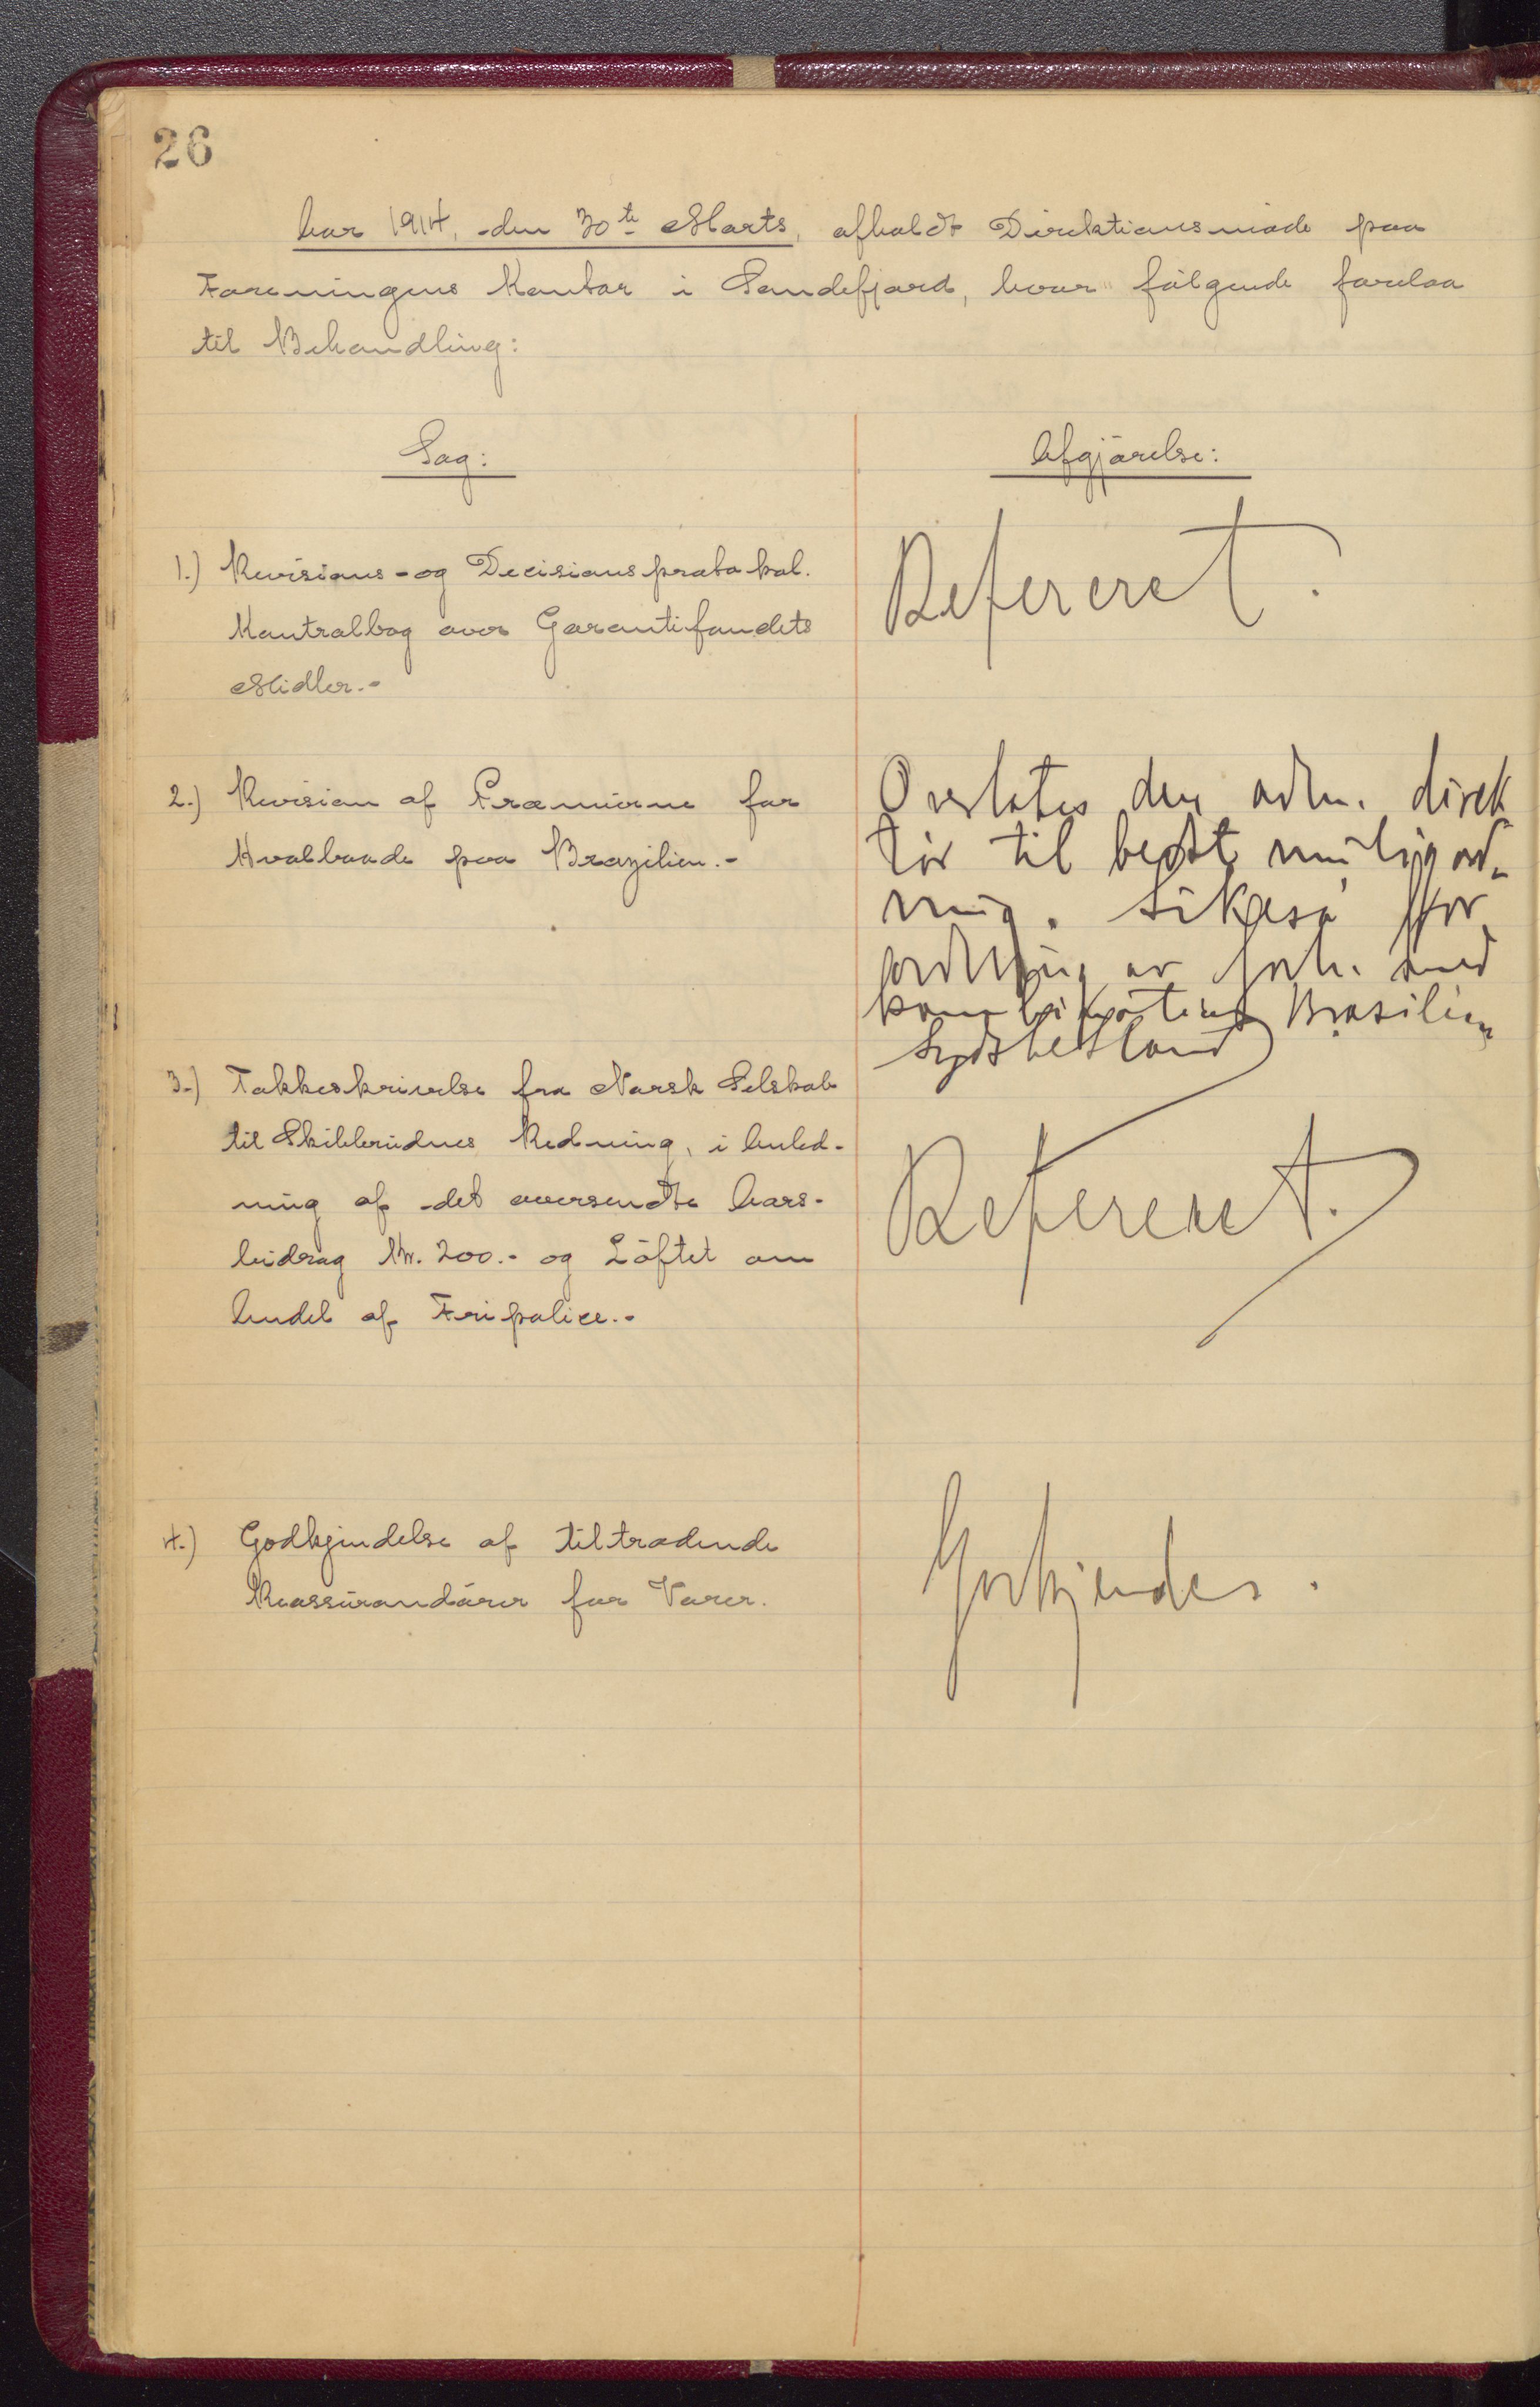 26
Aar 1914, den 30te Marts, afholdt Direktionsmöde paa
Foreningens Kontor i Sandefjord, hvor fölgende forelaa
til Behandling:
Sag:
Afgjörelse:
1.) Revisions- og Decisionsprotokol.
Kontrolbog over Garantifondets
Midler.-
Refereret.
2.) Revision af Præmierne for
Hvalbaade paa Brazilien.-
Overlates den adm. direk
tör til bedst mulig ord-
ning. Likesá for
ordning av forh. med
kombinationen Brasilien
Sydshetland
3.) Takkeskrivelse fra Norsk Selskab
til Skibbrudnes Redning, i Anled-
ning af det oversendte Aars-
bidrag Kr. 200.- og Löftet om
Andel af Fripolice.-
Refereret.
4.) Godkjendelse af tiltrædende
Reassürandörer for Varer.
Godkjendes.